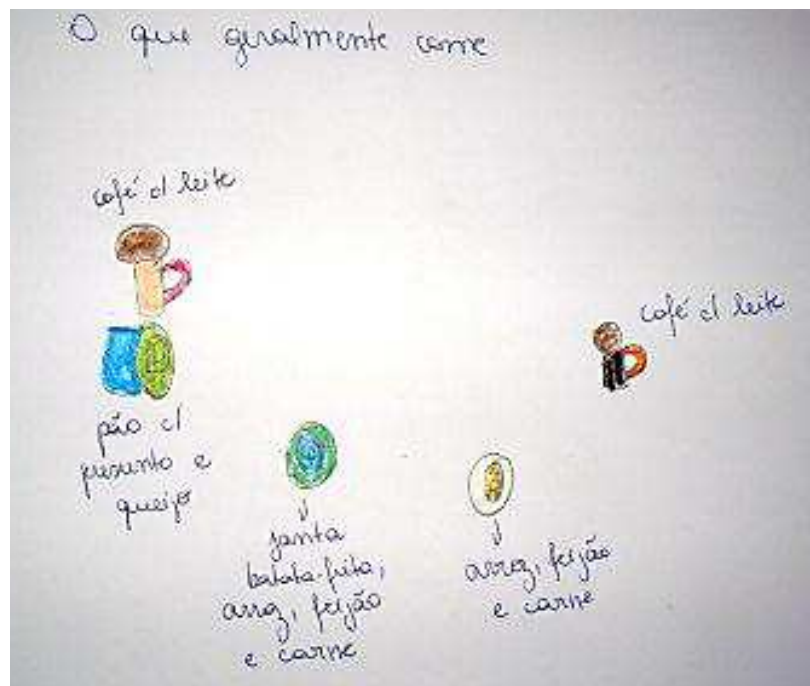 O que geralmente come
café c/ leite
pão c/
presunto e
queijo
janta
batata-frita,
arroz, feijão
e carne
arroz, feijão
e carne
café c/ leite